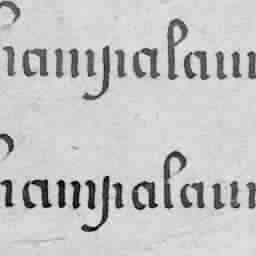 hampalaun
hampalaun